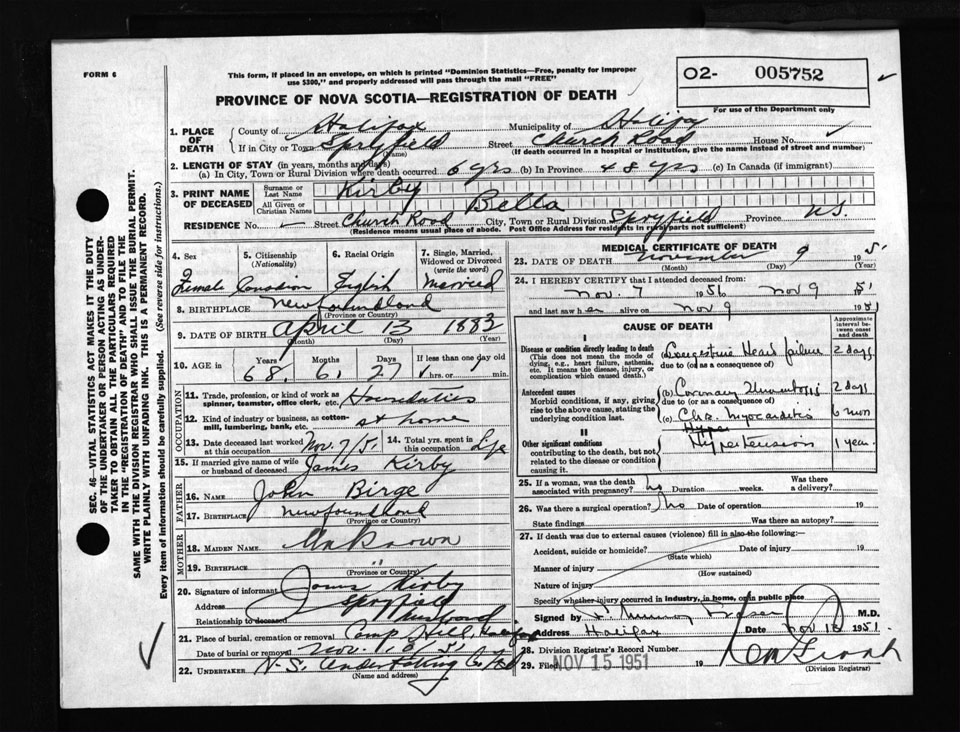 FORM 6
This form, if placed in an envelope, on which is printed "Dominion Statistics—Free, penalty for improper
use $300," and properly addressed will pass through the mail "FREE"
O2- 005752
For use of the Department only
PROVINCE OF NOVA SCOTIA—REGISTRATION OF DEATH
1. PLACE OF DEATH
County of Halifax Municipality of Halifax
If in City or Town Spryfield (Name) Street Church Road House No.
(If death occurred in a hospital or institution, give the name instead of street and number)
2. LENGTH OF STAY (in years, months and days)
(a) In City, Town or Rural Division where death occurred 6 yrs (b) In Province 48 yrs (c) In Canada (if immigrant)
3. PRINT NAME OF DECEASED
Surname or Last Name Kirby
All Given or Christian Names Bella
RESIDENCE No. Street Church Road City, Town or Rural Division Spryfield Province N.S.
(Residence means usual place of abode. Post Office Address for residents in rural parts not sufficient)
4. Sex Female
5. Citizenship (Nationality) Canadian
6. Racial Origin English
7. Single, Married, Widowed or Divorced (write the word) Married
8. BIRTHPLACE Newfoundland
(Province or Country)
9. DATE OF BIRTH April 13 1883
(Month) (Day) (Year)
10. AGE in Years 68 Months 6 Days 27 If less than one day old hrs. or min.
OCCUPATION
11. Trade, profession, or kind of work as spinner, teamster, office clerk, etc. Housduties
12. Kind of industry or business, as cotton-mill, lumbering, bank, etc. at home
13. Date deceased last worked at this occupation Nov. 7/51
14. Total yrs. spent in this occupation Life
15. If married give name of wife or husband of deceased James Kirby
FATHER
16. NAME John Birge
17. BIRTHPLACE Newfoundland
(Province or Country)
MOTHER
18. MAIDEN NAME Unknown
19. BIRTHPLACE "
(Province or Country)
20. Signature of informant Kirby
Address Spryfield
Relationship to deceased husband
21. Place of burial, cremation or removal Camp Hill, Halifax
Date of burial or removal Nov. 51
22. UNDERTAKER N.S. Undertaking Co Ltd
(Name and address)
MEDICAL CERTIFICATE OF DEATH
23. DATE OF DEATH November 9 195
(Month) (Day) (Year)
24. I HEREBY CERTIFY that I attended deceased from
Nov. 7 195 Nov 9 51
and last saw her alive on Nov 9 1951
CAUSE OF DEATH
Approximate interval between onset and death
I
Disease or condition directly leading to death
(This does not mean the mode of dying, e.g., heart failure, asthenia, etc. It means the disease, injury, or complication which caused death.)
(a) Congestive Heart failure 2 days
due to (or as a consequence of)
Antecedent causes
Morbid conditions, if any, giving rise to the above cause, stating the underlying condition last.
(b) Coronary Thrombosis 2 days
due to (or as a consequence of)
(c) Chr. Myocarditis 6 mon
II
Other significant conditions
contributing to the death, but not related to the disease or condition causing it.
Hyper
Hypertension 1 year
25. If a woman, was the death associated with pregnancy? no Duration weeks. Was there a delivery?
26. Was there a surgical operation? No Date of operation 19
State findings Was there an autopsy?
27. If death was due to external causes (violence) fill in also the following:—
Accident, suicide or homicide? (State which) Date of injury 19
Manner of injury (How sustained)
Nature of injury
Specify whether injury occurred in industry, in home, or in public place
Signed by Murray Fraser M.D.
Address Halifax Date Nov 1951.
28. Division Registrar's Record Number
29. Filed NOV 15 1951 19
(Division Registrar)
SEC. 46—VITAL STATISTICS ACT MAKES IT THE DUTY
OF THE UNDERTAKER OR PERSON ACTING AS UNDER-
TAKER TO OBTAIN ALL THE PARTICULARS REQUIRED
IN THE "REGISTRATION OF DEATH" AND TO FILE THE
SAME WITH THE DIVISION REGISTRAR WHO SHALL ISSUE THE BURIAL PERMIT.
WRITE PLAINLY WITH UNFADING INK. THIS IS A PERMANENT RECORD.
Every item of information should be carefully supplied. (See reverse side for instructions.)